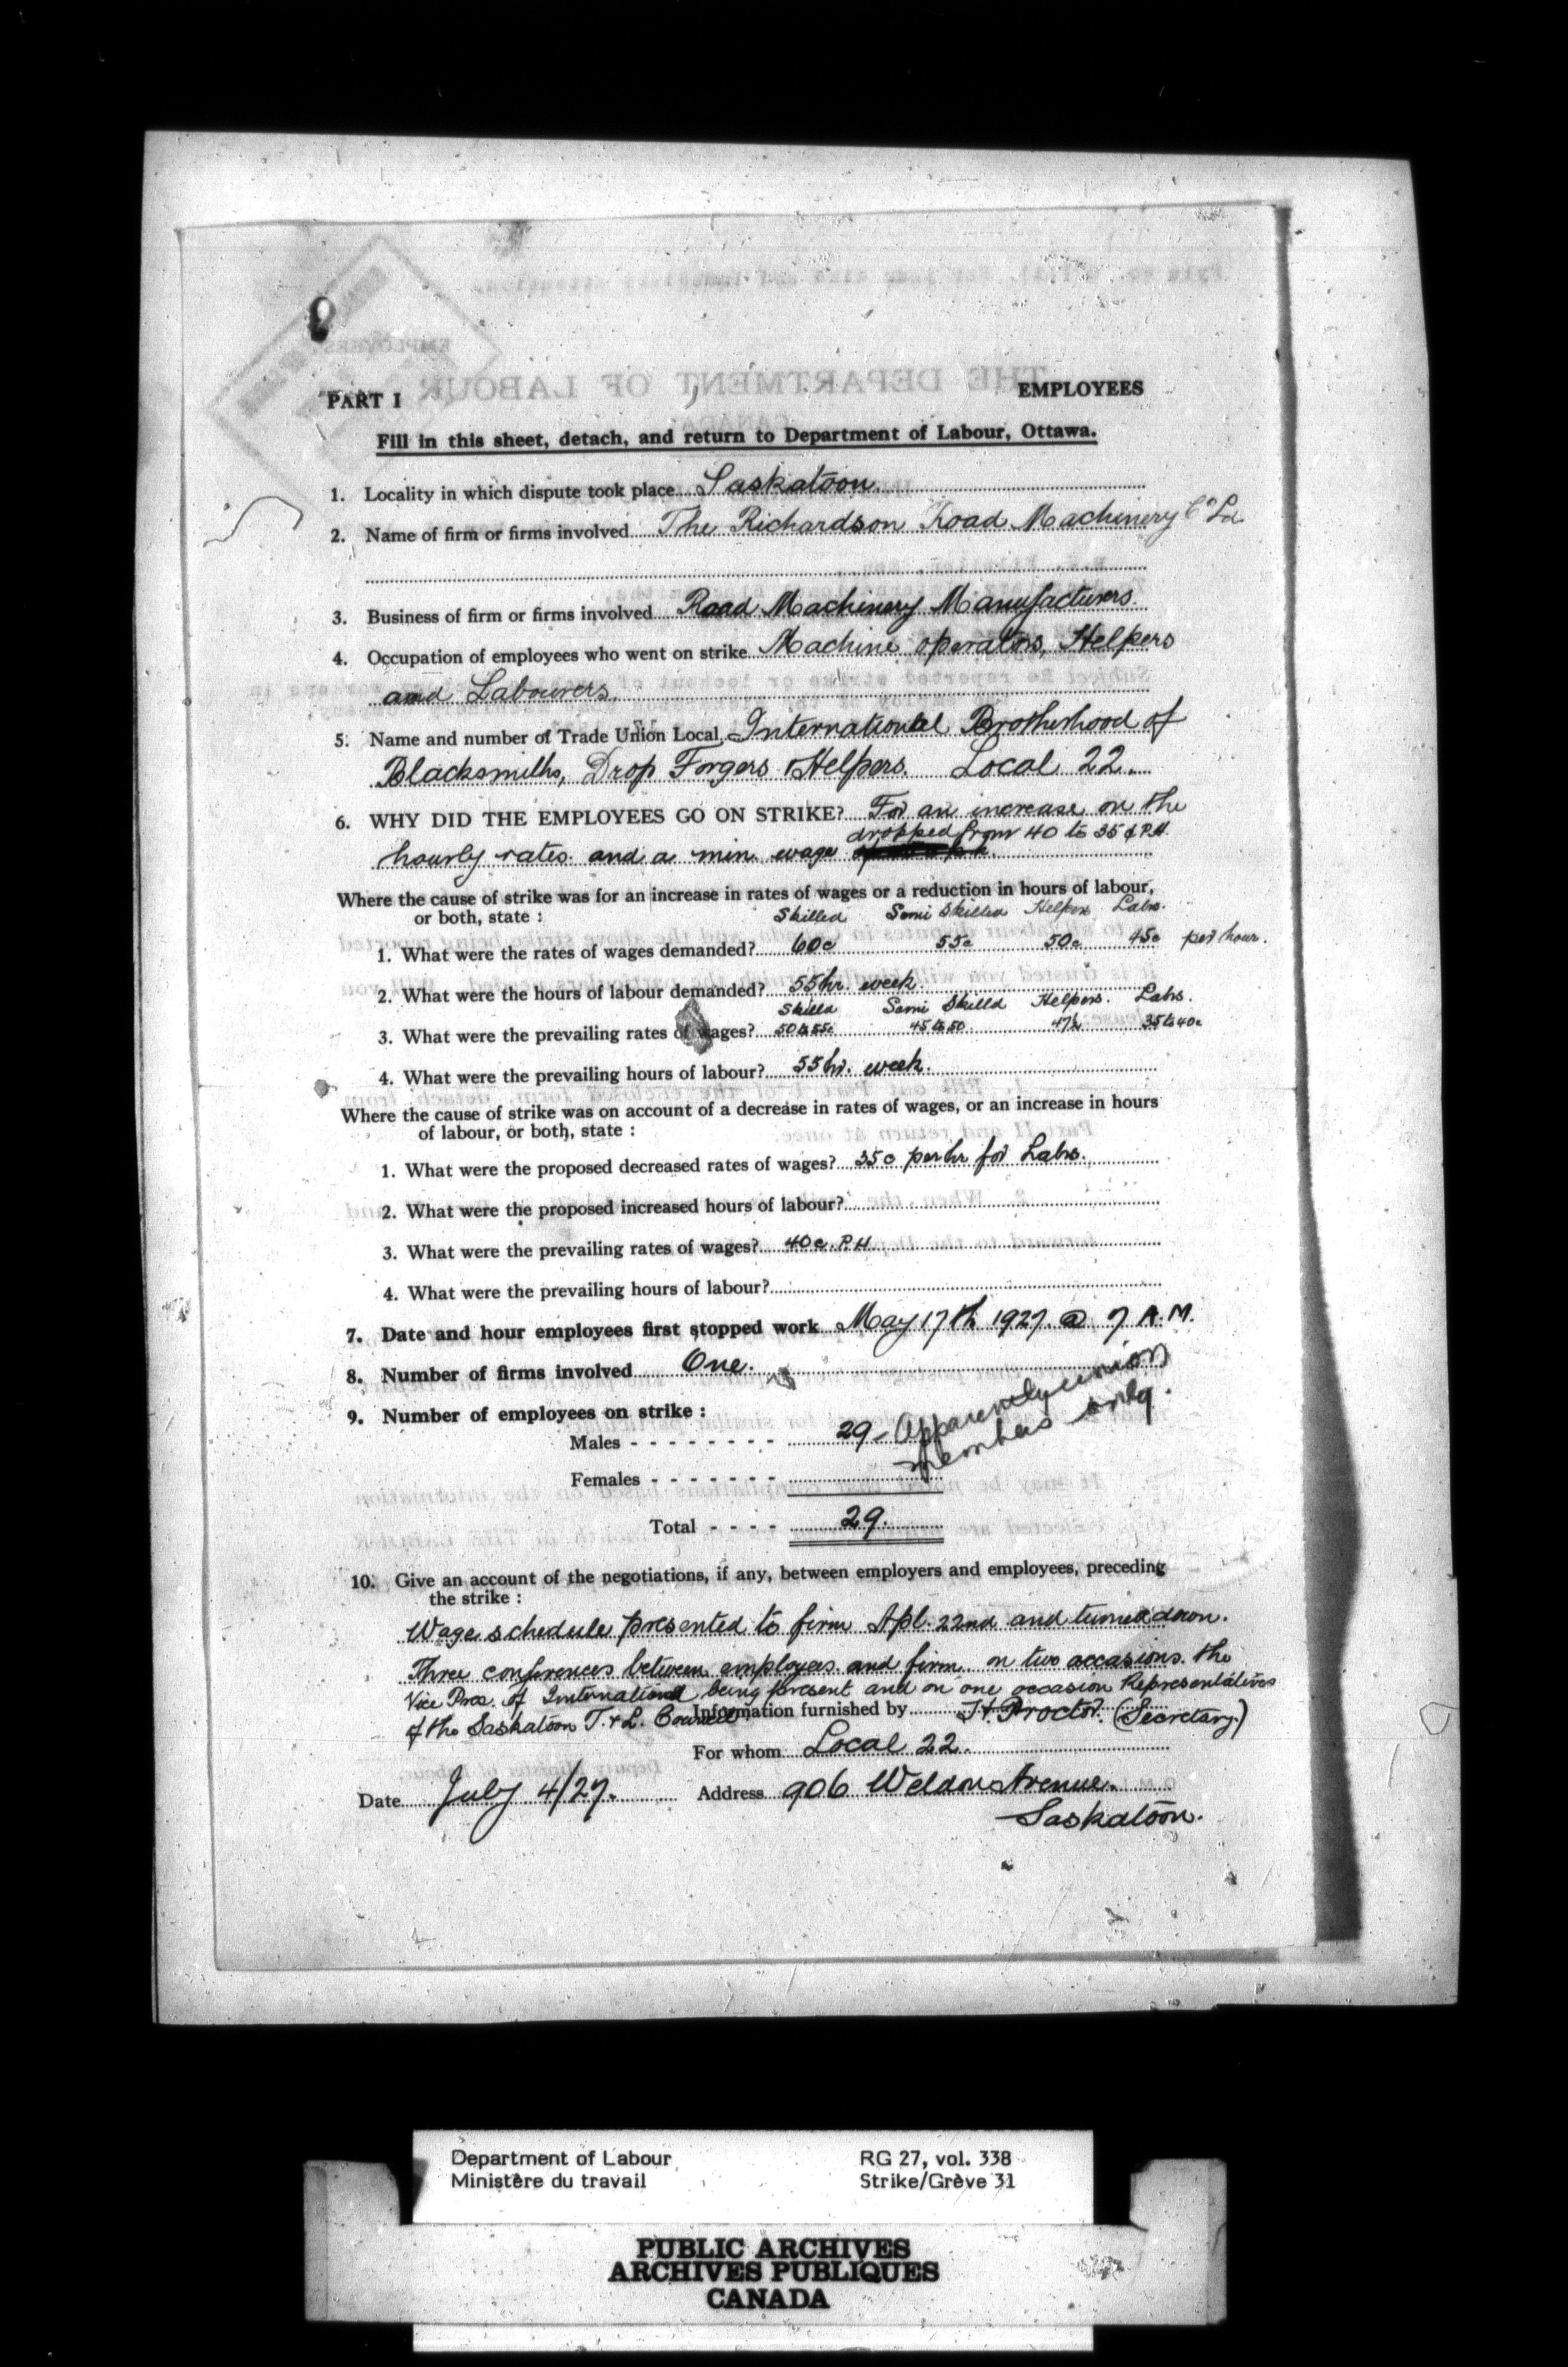 PART I
EMPLOYEES
Fill in this sheet, detach, and return to Department of Labour, Ottawa.
1. Locality in which dispute took place Saskatoon.
2. Name of firm or firms involved The Richardson Road Machinery Co Ld.
3. Business of firm or firms involved Road Machinery Manufacturers.
4. Occupation of employees who went on strike Machine operators, Helpers
and Labourers.
5. Name and number of Trade Union Local International Brotherhood of
Blacksmiths, Drop Forgers & Helpers. Local 22.
6. WHY DID THE EMPLOYEES GO ON STRIKE? For an increase on the
dropped from 40 to 35 ¢ P.H.
hourly rates and a min. wage
Where the cause of strike was for an increase in rates of wages or a reduction in hours of labour,
or both, state :
Skilled Semi Skilled Helpers Labs.
1. What were the rates of wages demanded? 60c 55c 50c 45c per hour.
2. What were the hours of labour demanded? 55 hr. week.
Skilled Semi Skilld Helpers. Labs.
3. What were the prevailing rates of wages? 50 to 55c 45 to 50 47½ 35 to 40c
4. What were the prevailing hours of labour? 55 hr. week.
Where the cause of strike was on account of a decrease in rates of wages, or an increase in hours
of labour, or both, state :
1. What were the proposed decreased rates of wages? 35c per hr for Labs.
2. What were the proposed increased hours of labour?
3. What were the prevailing rates of wages? 40c. P.H.
4. What were the prevailing hours of labour?
7. Date and hour employees first stopped work May 17th 1927. @ 7 A.M.
8. Number of firms involved One.
9. Number of employees on strike :
Males - - - - - - - - 29 - Apparently union
members only.
Females - - - - - - -
Total - - - - 29.
10. Give an account of the negotiations, if any, between employers and employees, preceding
the strike :
Wage schedule presented to firm Apl. 22nd and turned down.
Three conferences between employees and firm on two occasions the
Vice Pres. of International being present and on one occasion Representatives
of the Saskatoon T. & L. Council
Information furnished by Proctor. (Secretary)
For whom Local 22.
Date July 4/27. Address 906 Weldon Avenue.
Saskatoon.
Department of Labour
Ministère du travail
RG 27, vol. 338
Strike/Grève 31
PUBLIC ARCHIVES
ARCHIVES PUBLIQUES
CANADA